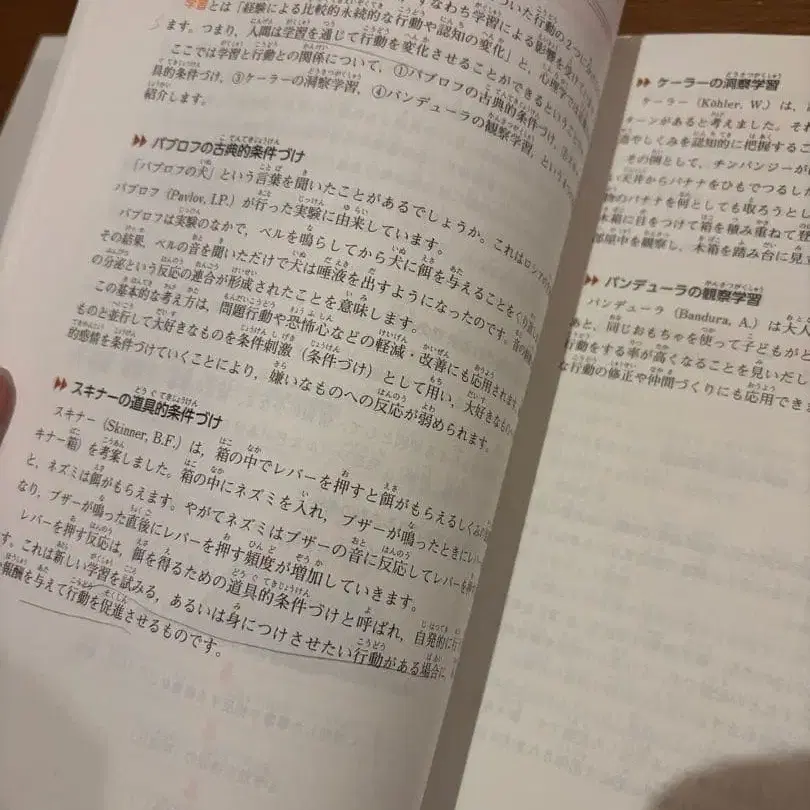 すなわち学習による行動の2つに
学習とは「経験による比較的永続的な行動や認知の変化」と、心理学では
ます。つまり、人間は学習を通じて行動を変化させることができるという
ここでは学習と行動との関係について、①パブロフの古典的条件づけ、
具的条件づけ、③ケーラーの洞察学習、④バンデューラの観察学習、という
紹介します。
パブロフの古典的条件づけ
「パブロフの犬」という言葉を聞いたことがあるでしょうか。これはロシアの
パブロフ（Pavlov, I.P.）が行った実験に由来しています。
パブロフは実験のなかで、ベルを鳴らしてから犬に餌を与えることをくり返し
その結果、ベルの音を聞いただけで犬は唾液を出すようになったのです。音の
の分泌という反応の連合が形成されたことを意味します。
この基本的な考え方は、問題行動や恐怖心などの軽減・改善にも応用されます。
ものと並行して大好きなものを条件刺激（条件づけ）として用い、大好きなものへ
的感情を条件づけていくことにより、嫌いなものへの反応が弱められます。
スキナーの道具的条件づけ
スキナー（Skinner, B.F.）は、箱の中でレバーを押すと餌がもらえるしくみ
キナー箱）を考案しました。箱の中にネズミを入れ、ブザーが鳴ったときにレバ
と、ネズミは餌がもらえます。やがてネズミはブザーの音に反応してレバーを押
なり、ブザーが鳴った直後にレバーを押す頻度が増加していきます。
レバーを押す反応は、餌を得るための道具的条件づけと呼ばれ、自発的に行
す。これは新しい学習を試みる、あるいは身につけさせたい行動がある場合に、
報酬を与えて行動を促進させるものです。
ケーラーの洞察学習
ケーラー（Köhler, W.）は、
ターンがあると考えました。それ
造やしくみを認知的に把握するこ
その例として、チンパンジーが
い天井からバナナをひもでつるした
物のバナナを何としても取ろうとし
木箱に目をつけて箱を積み重ねて登
部屋中を観察し、木箱を踏み台に見立
バンデューラの観察学習
バンデューラ（Bandura, A.）は大人
あと、同じおもちゃを使って子どもがど
行動をする率が高くなることを見いだし
な行動の修正や仲間づくりにも応用でき